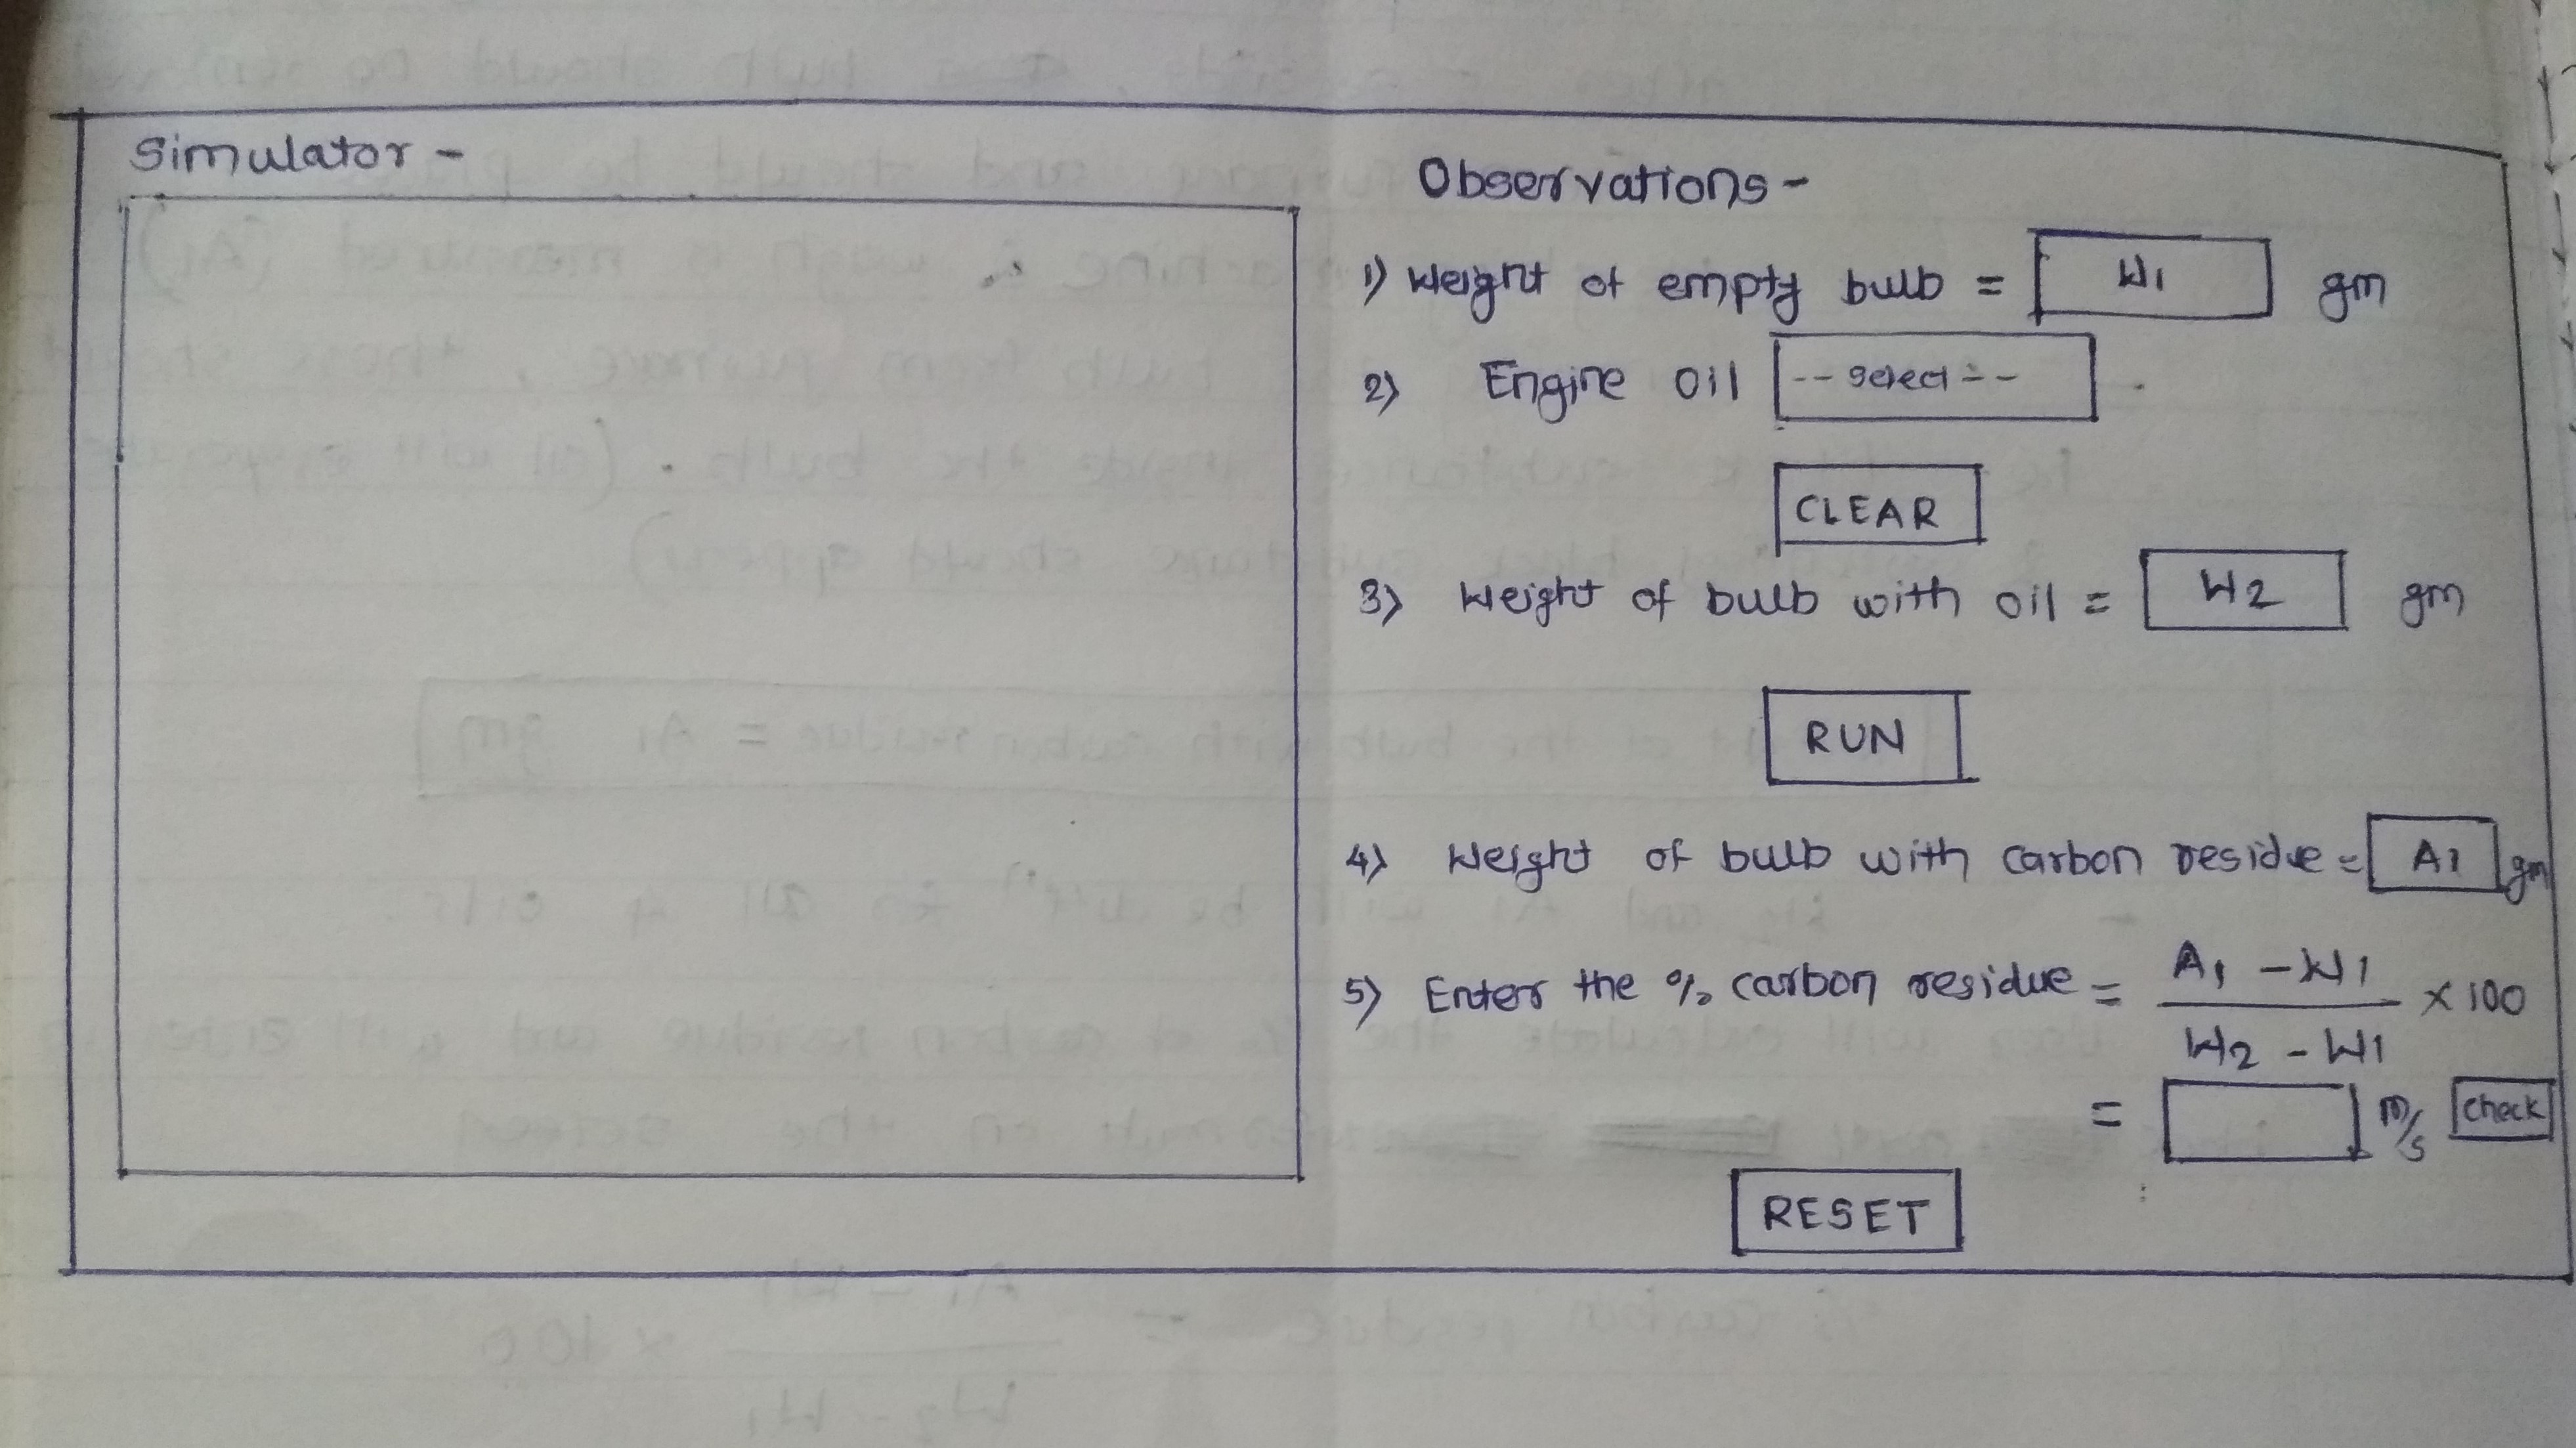 Simulator -
Observations -
1) Weight of empty bulb = W1 gm
2) Engine oil -- select --
CLEAR
3) Weight of bulb with oil = W2 gm
RUN
4) Weight of bulb with carbon residue = A1 gm
5) Enter the % carbon residue = A1 - W1 / W2 - W1 × 100
= m/s Check
RESET